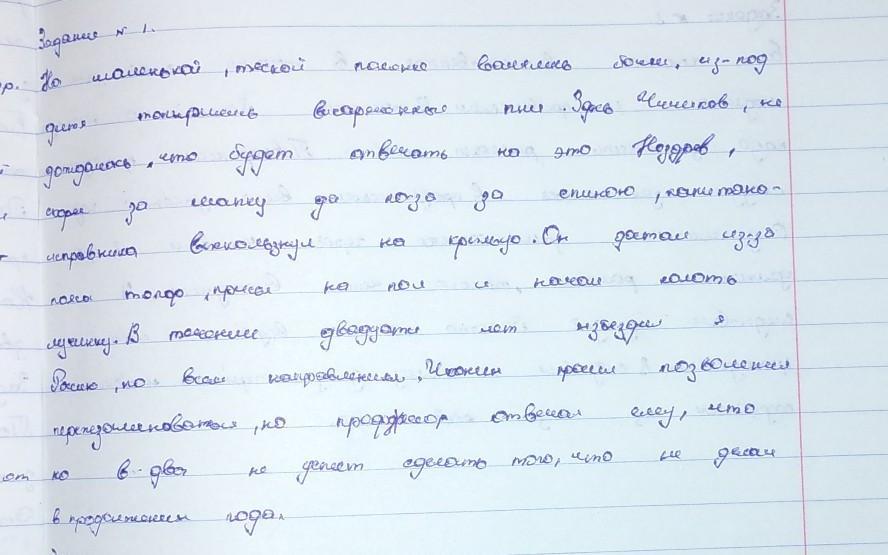 Задание № 1.
р. На маленькой, тесной полочке валялись бочки, из-под
дегтя топырились выкорченные пни. Здесь Чичиков, не
дожидаясь, что будет отвечать на это Ноздрев,
скорее за шапку да поза за спиною, капитана-
исправника выскользнул на крыльцо. Он достал из-за
пояса топор, присел на пол и, начал колоть
лучину. В течение двадцати лет изъездил я
Россию, по всем направлениям. Иконин просил позволения
переэкзаменоваться, но профессор отвечал ему, что
от но в два не успеет сделать того, что не делал
в продолжении года.